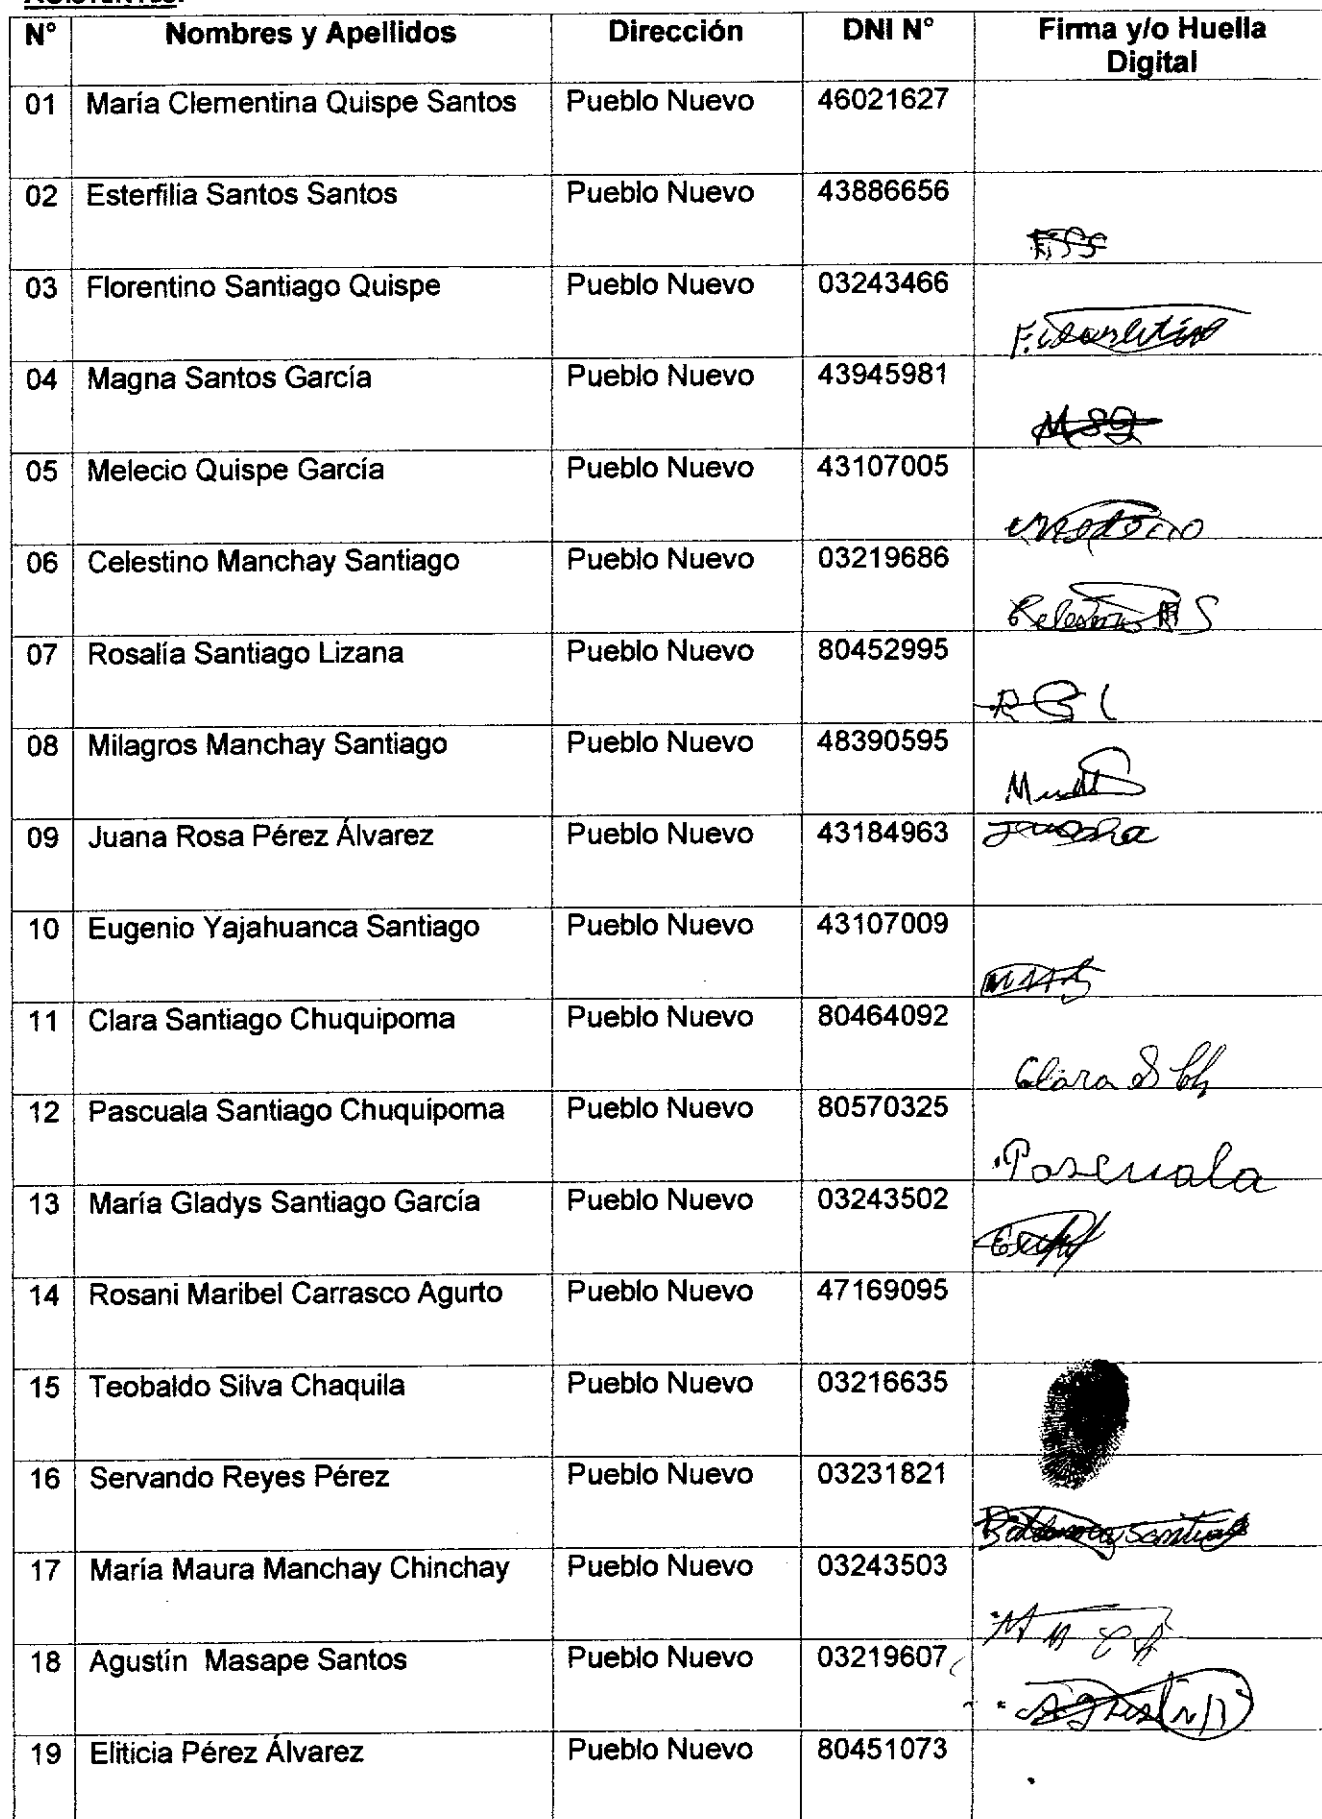 N° Nombres y Apellidos Dirección DNI N° Firma y/o Huella
Digital
01 María Clementina Quispe Santos Pueblo Nuevo 46021627
02 Esterfilia Santos Santos Pueblo Nuevo 43886656
03 Florentino Santiago Quispe Pueblo Nuevo 03243466
04 Magna Santos García Pueblo Nuevo 43945981
MSG
05 Melecio Quispe García Pueblo Nuevo 43107005
06 Celestino Manchay Santiago Pueblo Nuevo 03219686
07 Rosalía Santiago Lizana Pueblo Nuevo 80452995
08 Milagros Manchay Santiago Pueblo Nuevo 48390595
09 Juana Rosa Pérez Álvarez Pueblo Nuevo 43184963
10 Eugenio Yajahuanca Santiago Pueblo Nuevo 43107009
11 Clara Santiago Chuquipoma Pueblo Nuevo 80464092
Clara S Ch
12 Pascuala Santiago Chuquipoma Pueblo Nuevo 80570325
Pascuala
13 María Gladys Santiago García Pueblo Nuevo 03243502
14 Rosani Maribel Carrasco Agurto Pueblo Nuevo 47169095
15 Teobaldo Silva Chaquila Pueblo Nuevo 03216635
16 Servando Reyes Pérez Pueblo Nuevo 03231821
17 María Maura Manchay Chinchay Pueblo Nuevo 03243503
18 Agustín Masape Santos Pueblo Nuevo 03219607
19 Eliticia Pérez Álvarez Pueblo Nuevo 80451073